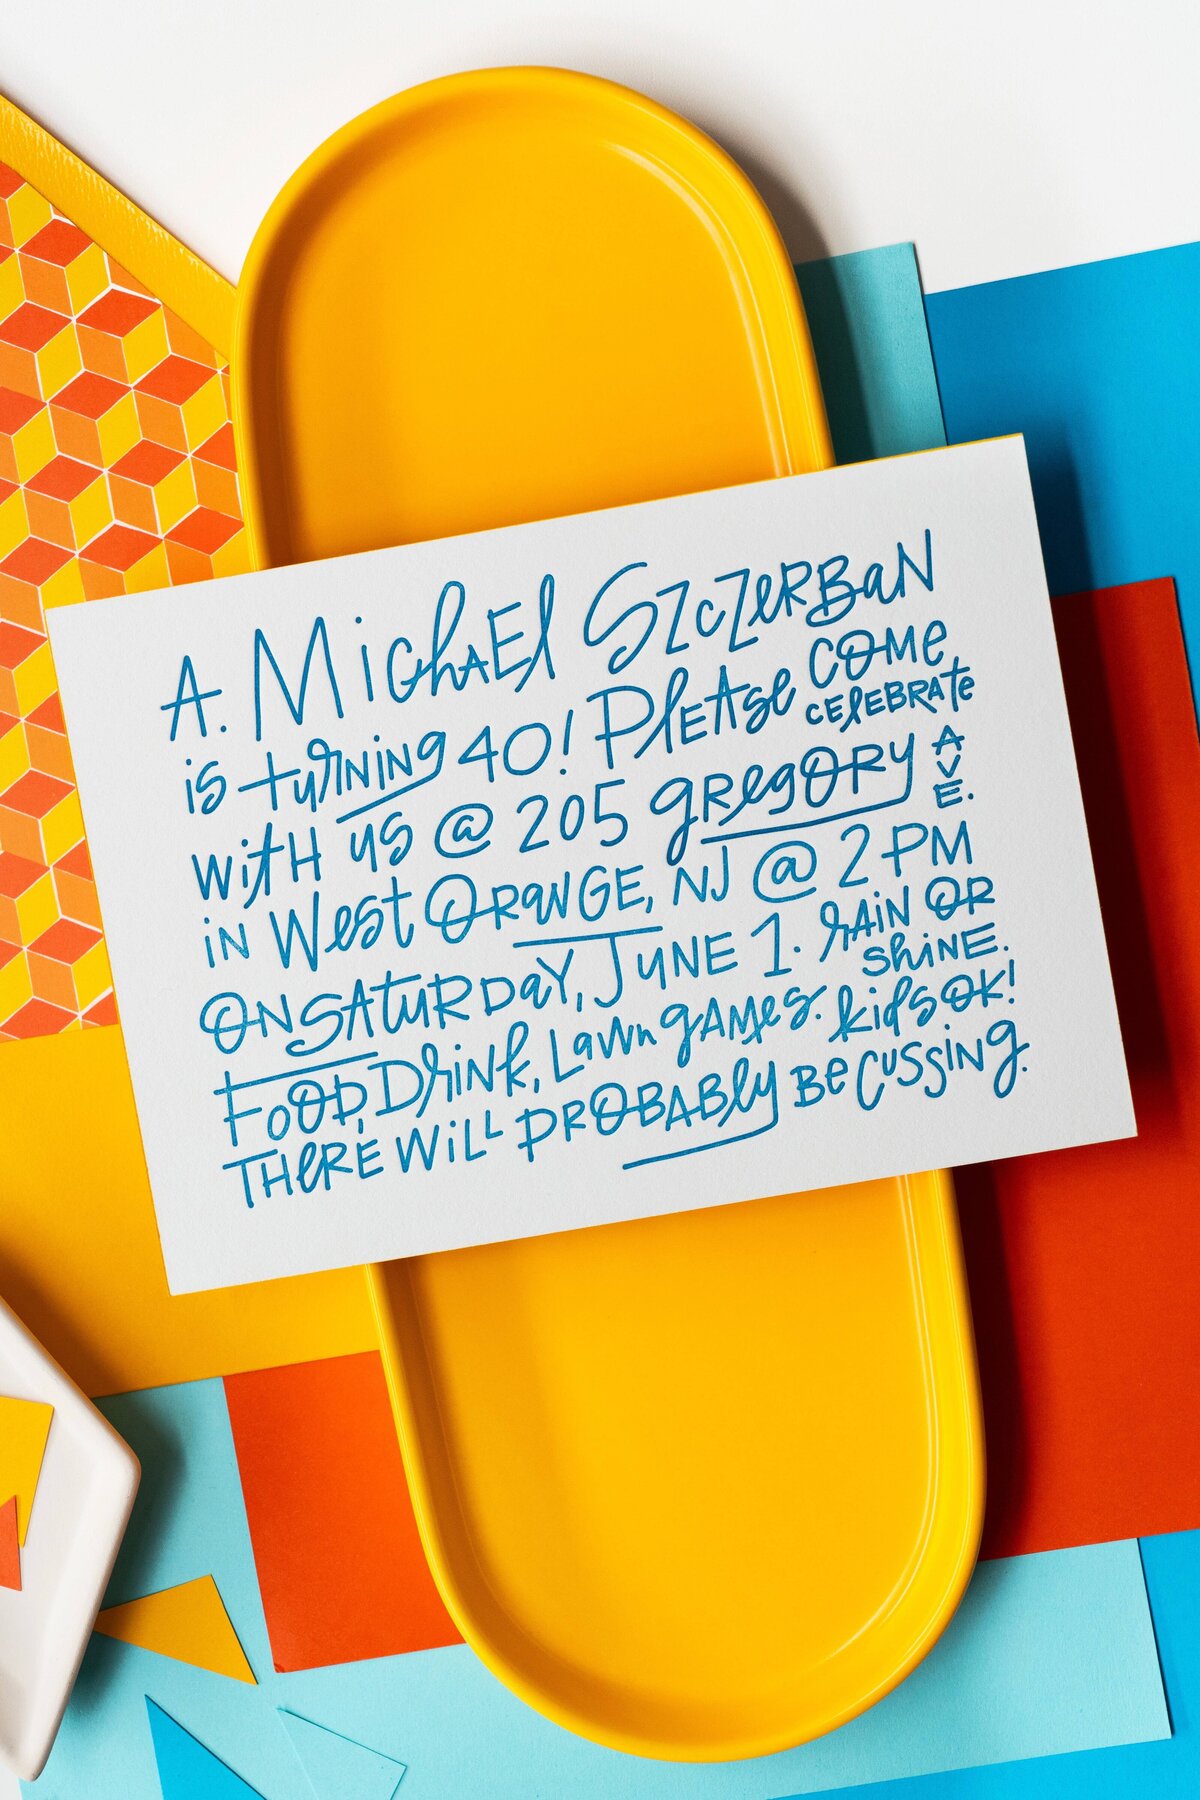 A. Michael Szczerban
is turning 40! Please come celebrate
with us @ 205 Gregory Ave.
in West Orange, NJ @ 2 PM
on Saturday, June 1. Rain or shine.
Food, Drink, Lawn games. Kids ok!
There will probably be cussing.